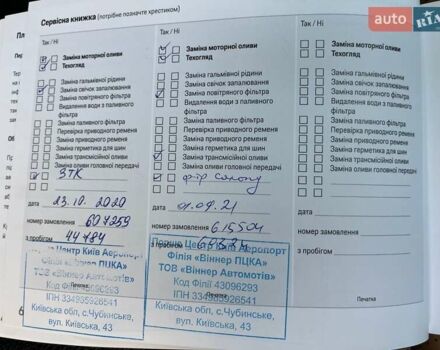 auto RIA
Сервісна книжка (потрібне позначте хрестиком)
Так / Ні
Заміна моторної оливи
Техогляд
Заміна гальмівної рідини
Заміна свічок запалювання
Заміна повітряного фільтра
Видалення води з паливного фільтра
Заміна паливного фільтра
Перевірка приводного ременя
Заміна приводного ременя
Заміна герметика для шин
Заміна трансмісійної оливи
Заміна оливи головної передачі
ЗТК
23.10.2020
номер замовлення 607259
з пробігом 44784
Печатка
Центр Київ Аеропорт
Філія «Віннер ПЦКА»
ТОВ «Віннер Автомотів»
Код Філії 43096293
ІПН 334935926541
Київська обл, с.Чубинське,
вул. Київська, 43
Так / Ні
Заміна моторної оливи
Техогляд
Заміна гальмівної рідини
Заміна свічок запалювання
Заміна повітряного фільтра
Видалення води з паливного фільтра
Заміна паливного фільтра
Перевірка приводного ременя
Заміна приводного ременя
Заміна герметика для шин
Заміна трансмісійної оливи
Заміна оливи головної передачі
фір салону
01.09.21
номер замовлення 615504
з пробігом
Порше Центр Київ Аеропорт
Філія «Віннер ПЦКА»
ТОВ «Віннер Автомотів»
Код Філії 43096293
ІПН 334935926541
Київська обл, с.Чубинське,
вул. Київська, 43
Так / Ні
Заміна моторної оливи
Техогляд
Заміна гальмівної рідини
Заміна свічок запалювання
Заміна повітряного фільтра
Видалення води з паливного фільтра
Заміна паливного фільтра
Перевірка приводного ременя
Заміна приводного ременя
Заміна герметика для шин
Заміна трансмісійної оливи
Заміна оливи головної передачі
дата
номер замовлення
з пробігом
Печатка